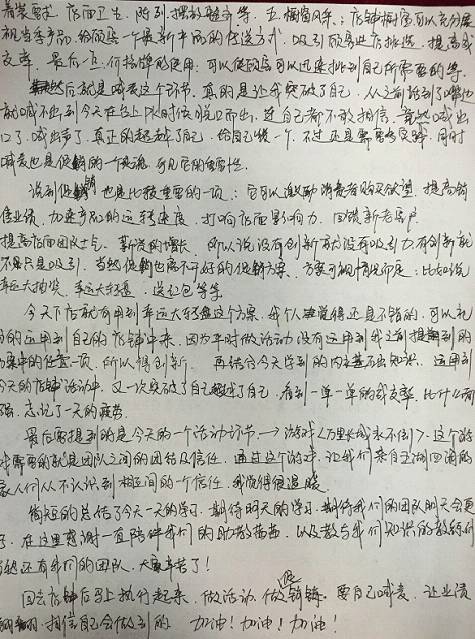 着装要求、店面卫生、陈列、摆放整齐等。五、橱窗风采:店铺橱窗可以充分展
现当季产品,给顾客一个最新中雨的传送方式,吸引顾客进店挑选,提高成
交率。最后一点价格牌的使用:可以使顾客可以迅速找到自己所需要的等。
然后就是喊麦这个环节,真的是让我突破了自己,从之前话到了嘴也
就喊不出到今天在台上限时依脱口而出,连自己都不敢相信,竟然喊出
口了,喊出声了,真正的超越了自己,给自己一个。不过还是需要多实践,同时
喊麦也是促销的一个灵魂,可见它的重要性。
说到促销也是比较重要的一项:它可以激励消费者购买欲望,提高销
售业绩,加速产品的运转速度,打响店面影响力,回馈新老客户
提高店面团队士气,新货的增长,所以说没有创新就没有吸引力,有创新就
不是只是吸引,当然促销也离不开好的促销方案,方案可视情况而定:比如说
幸运大抽奖,幸运大转盘,送红包等等。
今天下店就有用到幸运大转盘这个方案,我个人觉得还是不错的,可以充
的运用到自己的店铺中来,因为平时做活动没有运用到我之前提到的
方案中的任意一项,所以得创新,再结合今天学到的内容知识,运用到
今天的店铺活动中,又一次突破了自己超越了自己,看到一单一单的成交率,比什么都
强,忘记了一天的疲劳。
最后要提到的是今天的一个活动环节→游戏《万里长城永不倒》,这个游
戏需要的就是团队之间的团结及信任,通过这个游戏,让我们来自五湖四海的
家人们从不认识到相互间的一个信任,我觉得很温暖。
简短的总结了今天一天的学习,期待明天的学习,期待我们的团队明天会更
好,在这里感谢一直陪伴我们的助教萌萌,以及教与我们知识的教练们
当然还有我们的团队,大家辛苦了!
回去店铺后马上执行起来,做活动,做促销,要自己喊麦,让业绩
翻翻,相信自己会做到的,加油!加油!加油!